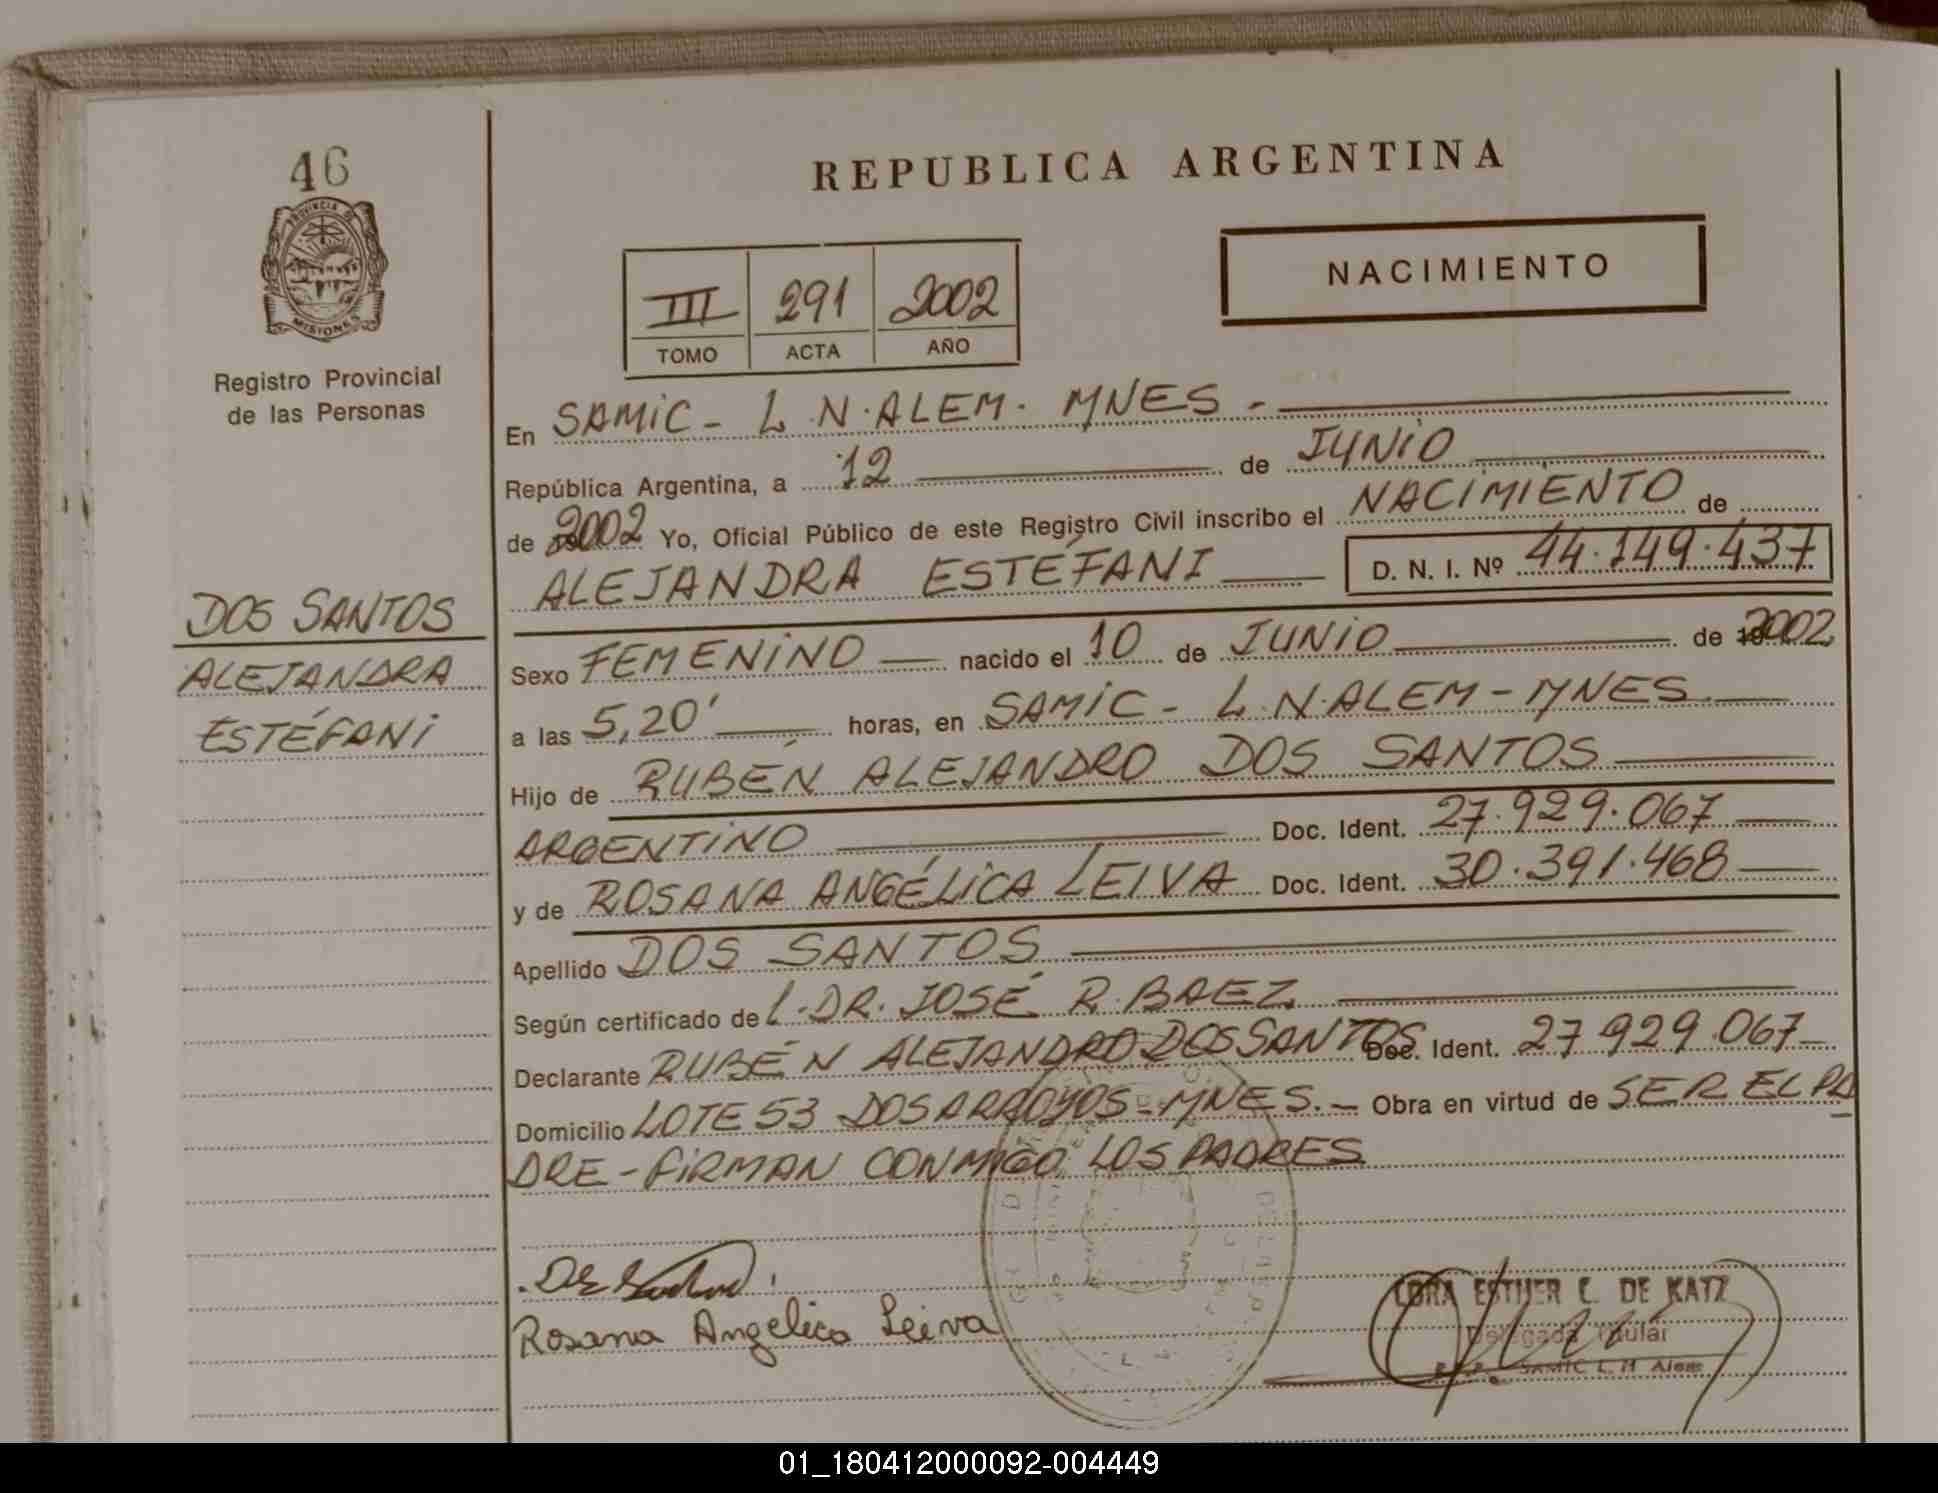 46
PROVINCIA DE
MISIONES
Registro Provincial
de las Personas
DOS SANTOS
ALEJANDRA
ESTÉFANI
REPUBLICA ARGENTINA
NACIMIENTO
III 291 2002
TOMO ACTA AÑO
En SAMIC - L.N.ALEM. MNES -
República Argentina, a 12 de JUNIO
de 2002 Yo, Oficial Público de este Registro Civil inscribo el NACIMIENTO de
ALEJANDRA ESTÉFANI D. N. I. Nº 44.149.437
Sexo FEMENINO nacido el 10 de JUNIO de 2002
a las 5,20' horas, en SAMIC - L.N.ALEM - MNES
Hijo de RUBÉN ALEJANDRO DOS SANTOS
ARGENTINO Doc. Ident. 27.929.067
y de ROSANA ANGÉLICA LEIVA Doc. Ident. 30.391.468
Apellido DOS SANTOS
Según certificado de L. DR. JOSÉ R. BAEZ
Declarante RUBÉN ALEJANDRO DOS SANTOS Doc. Ident. 27.929.067
Domicilio LOTE 53 DOS ARROYOS - MNES. - Obra en virtud de SER EL PA
DRE - FIRMAN CONMIGO LOS PADRES
Rosana Angelica Leiva
ESTHER E. DE KATZ
Delegada Titular
SAMIC L. N. Alem
01_180412000092-004449